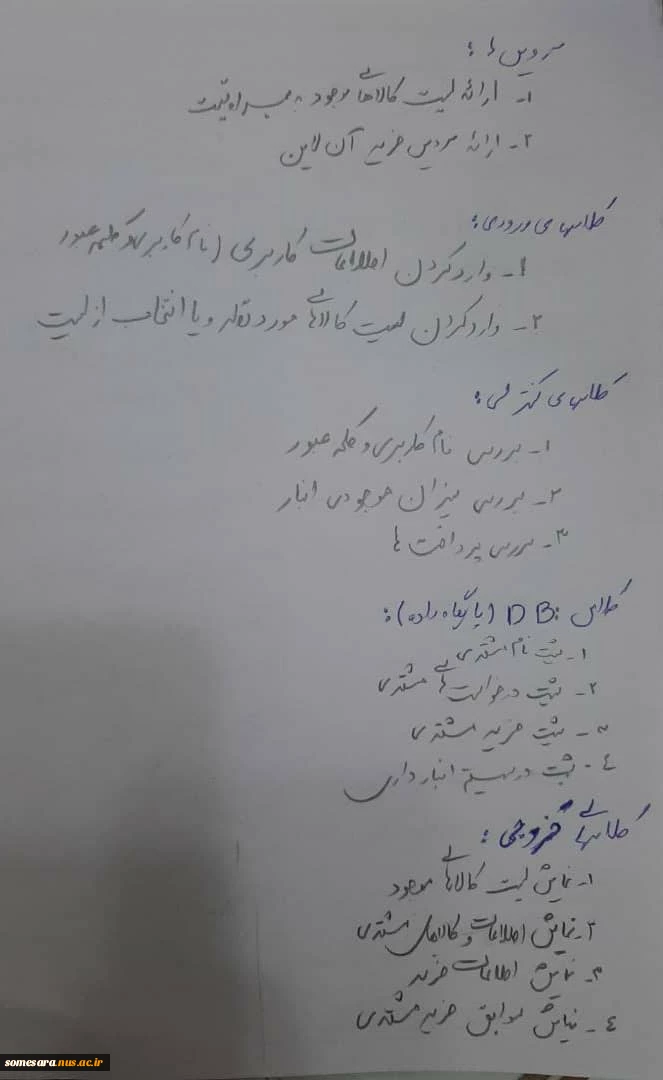 سرویس ها :
۱- ارائه لیست کالاهای موجود به همراه قیمت
۲- ارائه سرویس خرید آن لاین
کلاسهای ورودی :
۱- وارد کردن اطلاعات کاربری (نام کاربری و کلمه عبور
۲- وارد کردن لیست کالاهای مورد نظر و یا انتخاب از لیست
کلاسهای کنترلی :
۱- بررسی نام کاربری و کلمه عبور
۲- بررسی میزان موجودی انبار
۳- بررسی پرداخت ها
کلاس DB: (پایگاه داده) :
۱- ثبت نام مشتری
۲- ثبت درخواست های مشتری
۳- ثبت خرید مشتری
۴- ثبت در سیستم انبار داری
کلاسهای خروجی :
۱- نمایش لیست کالاهای موجود
۲- نمایش اطلاعات و کالاهای مشتری
۳- نمایش اطلاعات خرید
۴- نمایش سوابق خرید مشتری
somesara.nus.ac.ir